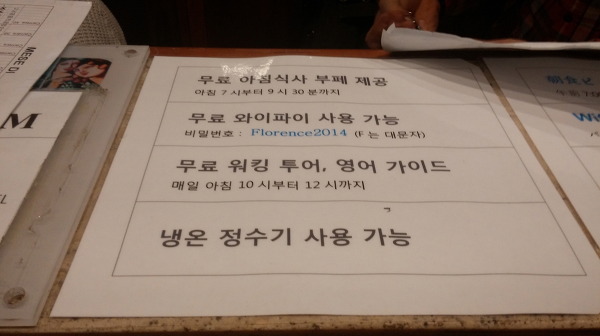 MESE DI
M
EL
무료 아침식사 부페 제공
아침 7시부터 9시 30분까지
무료 와이파이 사용 가능
비밀번호 : Florence2014 (F 는 대문자)
무료 워킹 투어, 영어 가이드
매일 아침 10시부터 12시까지
냉온 정수기 사용 가능
朝食ビ